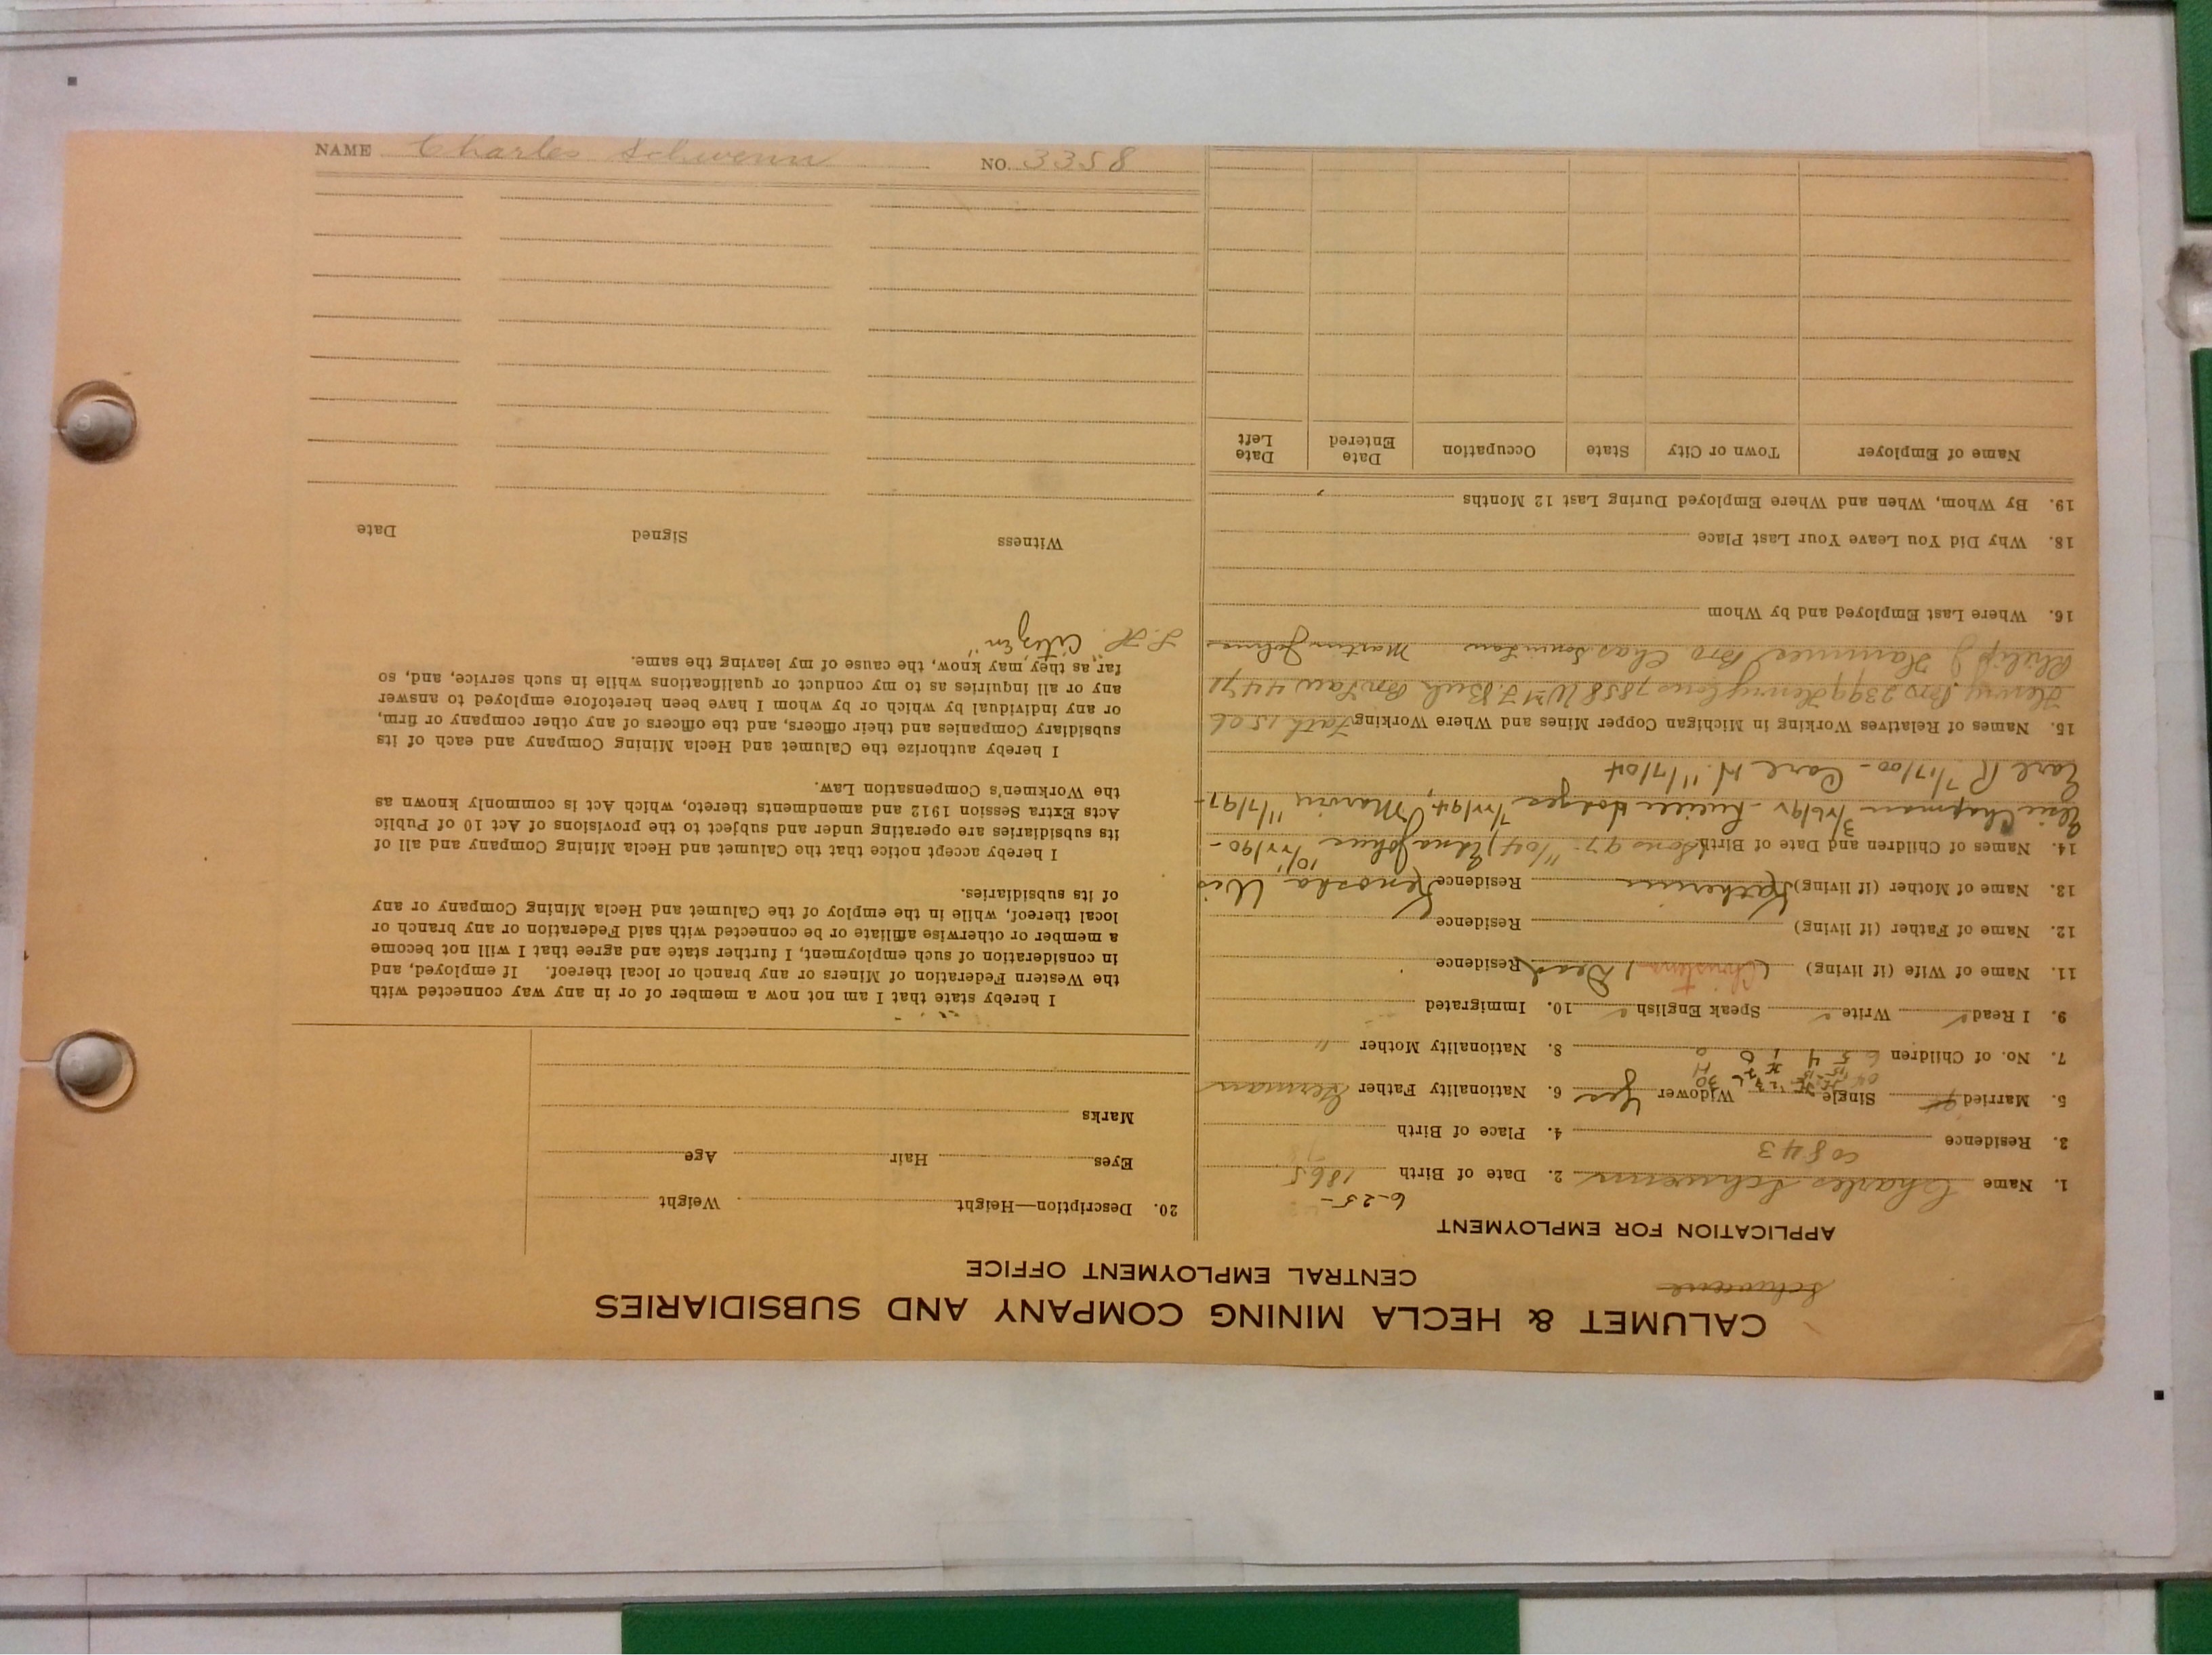 CALUMET & HECLA MINING COMPANY AND SUBSIDIARIES
CENTRAL EMPLOYMENT OFFICE
APPLICATION FOR EMPLOYMENT
6-25-
1. Name Charles Schwenn 2. Date of Birth 1865
Co 843
3. Residence 4. Place of Birth
5. Married Single Widower Yes 6. Nationality Father German
7. No. of Children 6 5 4 1 0 8. Nationality Mother "
9. I Read Write Speak English 10. Immigrated
11. Name of Wife (if living) (Christina) Dead Residence
12. Name of Father (if living) Residence
13. Name of Mother (if living) Katherine Residence Kenosha Wis
14. Names of Children and Date of Birth Sons 97- 11/04, Edna Johns 10/22/90-
Elsie Chapman 3/26/92- Lucille Hodges 7/22/94, Marvin 11/7/97-
Earl R 7/17/00- Carl H. 11/7/04
15. Names of Relatives Working in Michigan Copper Mines and Where Working Fath 1506
Henry Bro 2399 Henry Sons 7858 Wm J. Buck Bro Law 4471
Philip J Hammer Bro Chas Son in Law Martin Johns
16. Where Last Employed and by Whom
18. Why Did You Leave Your Last Place
19. By Whom, When and Where Employed During Last 12 Months
Name of Employer Town or City State Occupation Date Entered Date Left
20. Description—Height Weight
Eyes Hair Age
Marks
I hereby state that I am not now a member of or in any way connected with
the Western Federation of Miners or any branch or local thereof. If employed, and
in consideration of such employment, I further state and agree that I will not become
a member or otherwise affiliate or be connected with said Federation or any branch or
local thereof, while in the employ of the Calumet and Hecla Mining Company or any
of its subsidiaries.
I hereby accept notice that the Calumet and Hecla Mining Company and all of
its subsidiaries are operating under and subject to the provisions of Act 10 of Public
Acts Extra Session 1912 and amendments thereto, which Act is commonly known as
the Workmen's Compensation Law.
I hereby authorize the Calumet and Hecla Mining Company and each of its
subsidiary Companies and their officers, and the officers of any other company or firm,
or any individual by which or by whom I have been heretofore employed to answer
any or all inquiries as to my conduct or qualifications while in such service, and, so
far as they may know, the cause of my leaving the same.
S.H. "Citizen"
Witness Signed Date
NAME Charles Schwenn NO. 3358